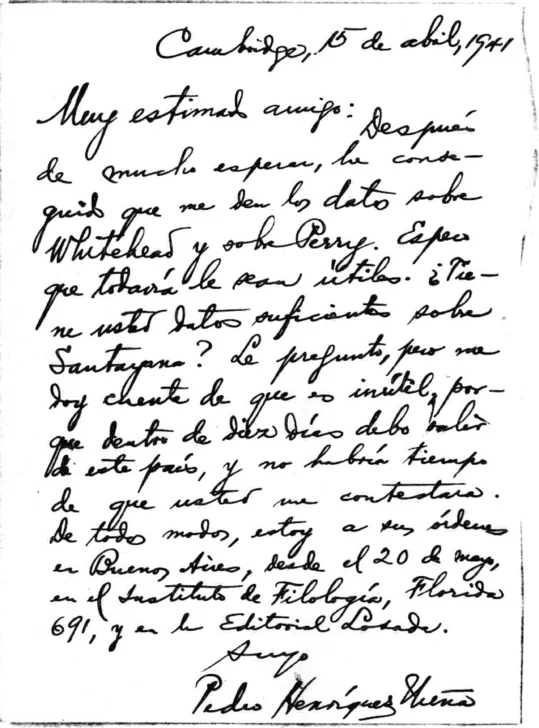 Cambridge, 15 de abril, 1941
Muy estimado amigo: Después
de mucho esperar, he conse-
guido que me den los datos sobre
Whitehead y sobre Perry. Espero
que todavía le sean útiles. ¿Tie-
ne usted datos suficientes sobre
Santayana? Le pregunto, pero me
doy cuenta de que es inútil, por-
que dentro de diez días debo salir
de este país, y no habría tiempo
de que usted me contestara.
De todos modos, estoy a sus órdenes
en Buenos Aires, desde el 20 de mayo,
en el Instituto de Filología, Florida
691, y en la Editorial Losada.
Suyo
Pedro Henríquez Ureña